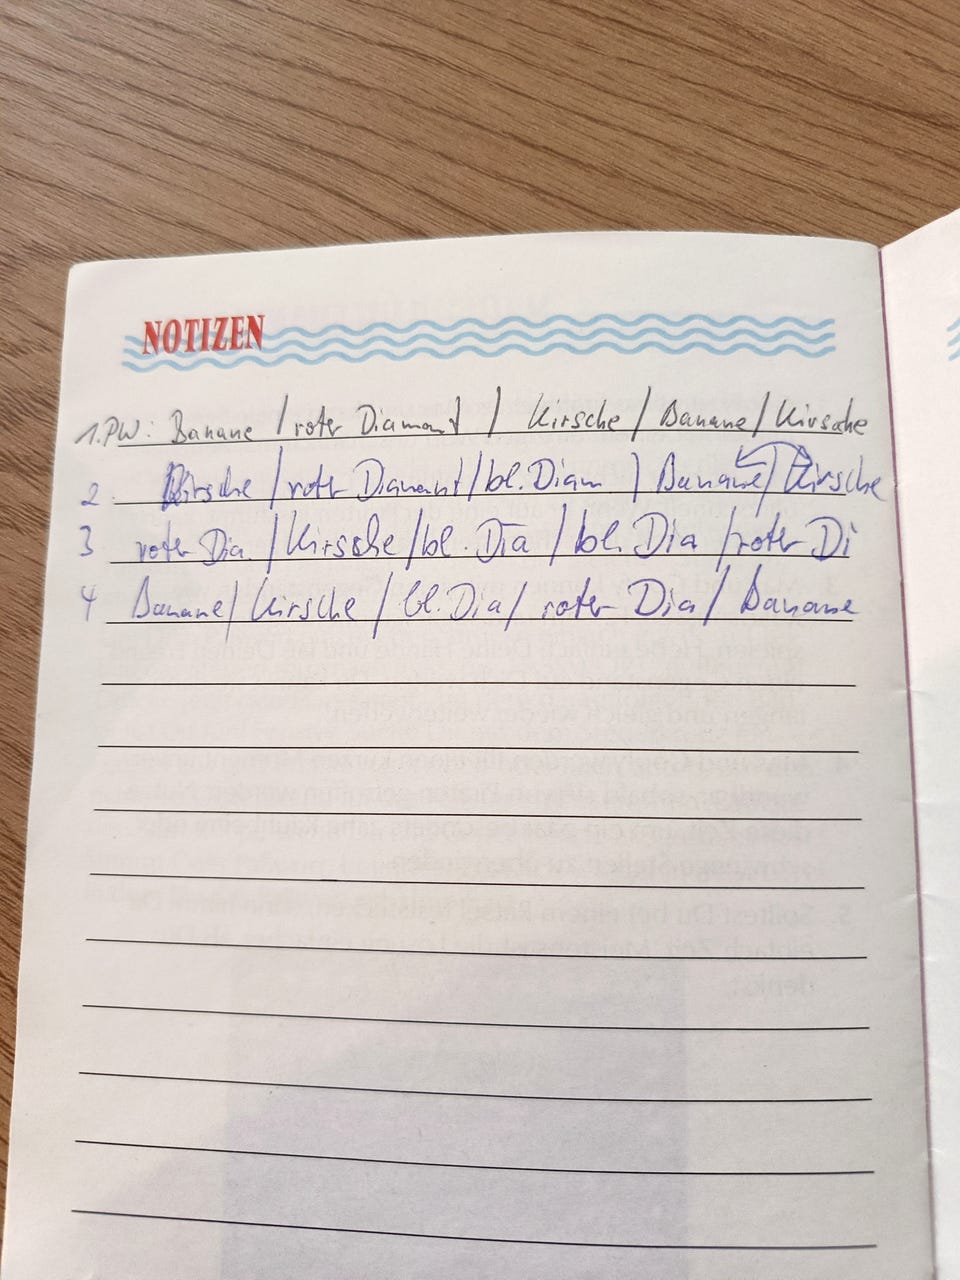 NOTIZEN
1. PW: Banane / roter Diamant / Kirsche / Banane / Kirsche
2 Kirsche / roter Diamant / bl. Diam / Banane / Kirsche
3 roter Dia. / Kirsche / bl. Dia / bl. Dia / roter Di
4 Banane / Kirsche / bl. Dia / roter Dia / Banane